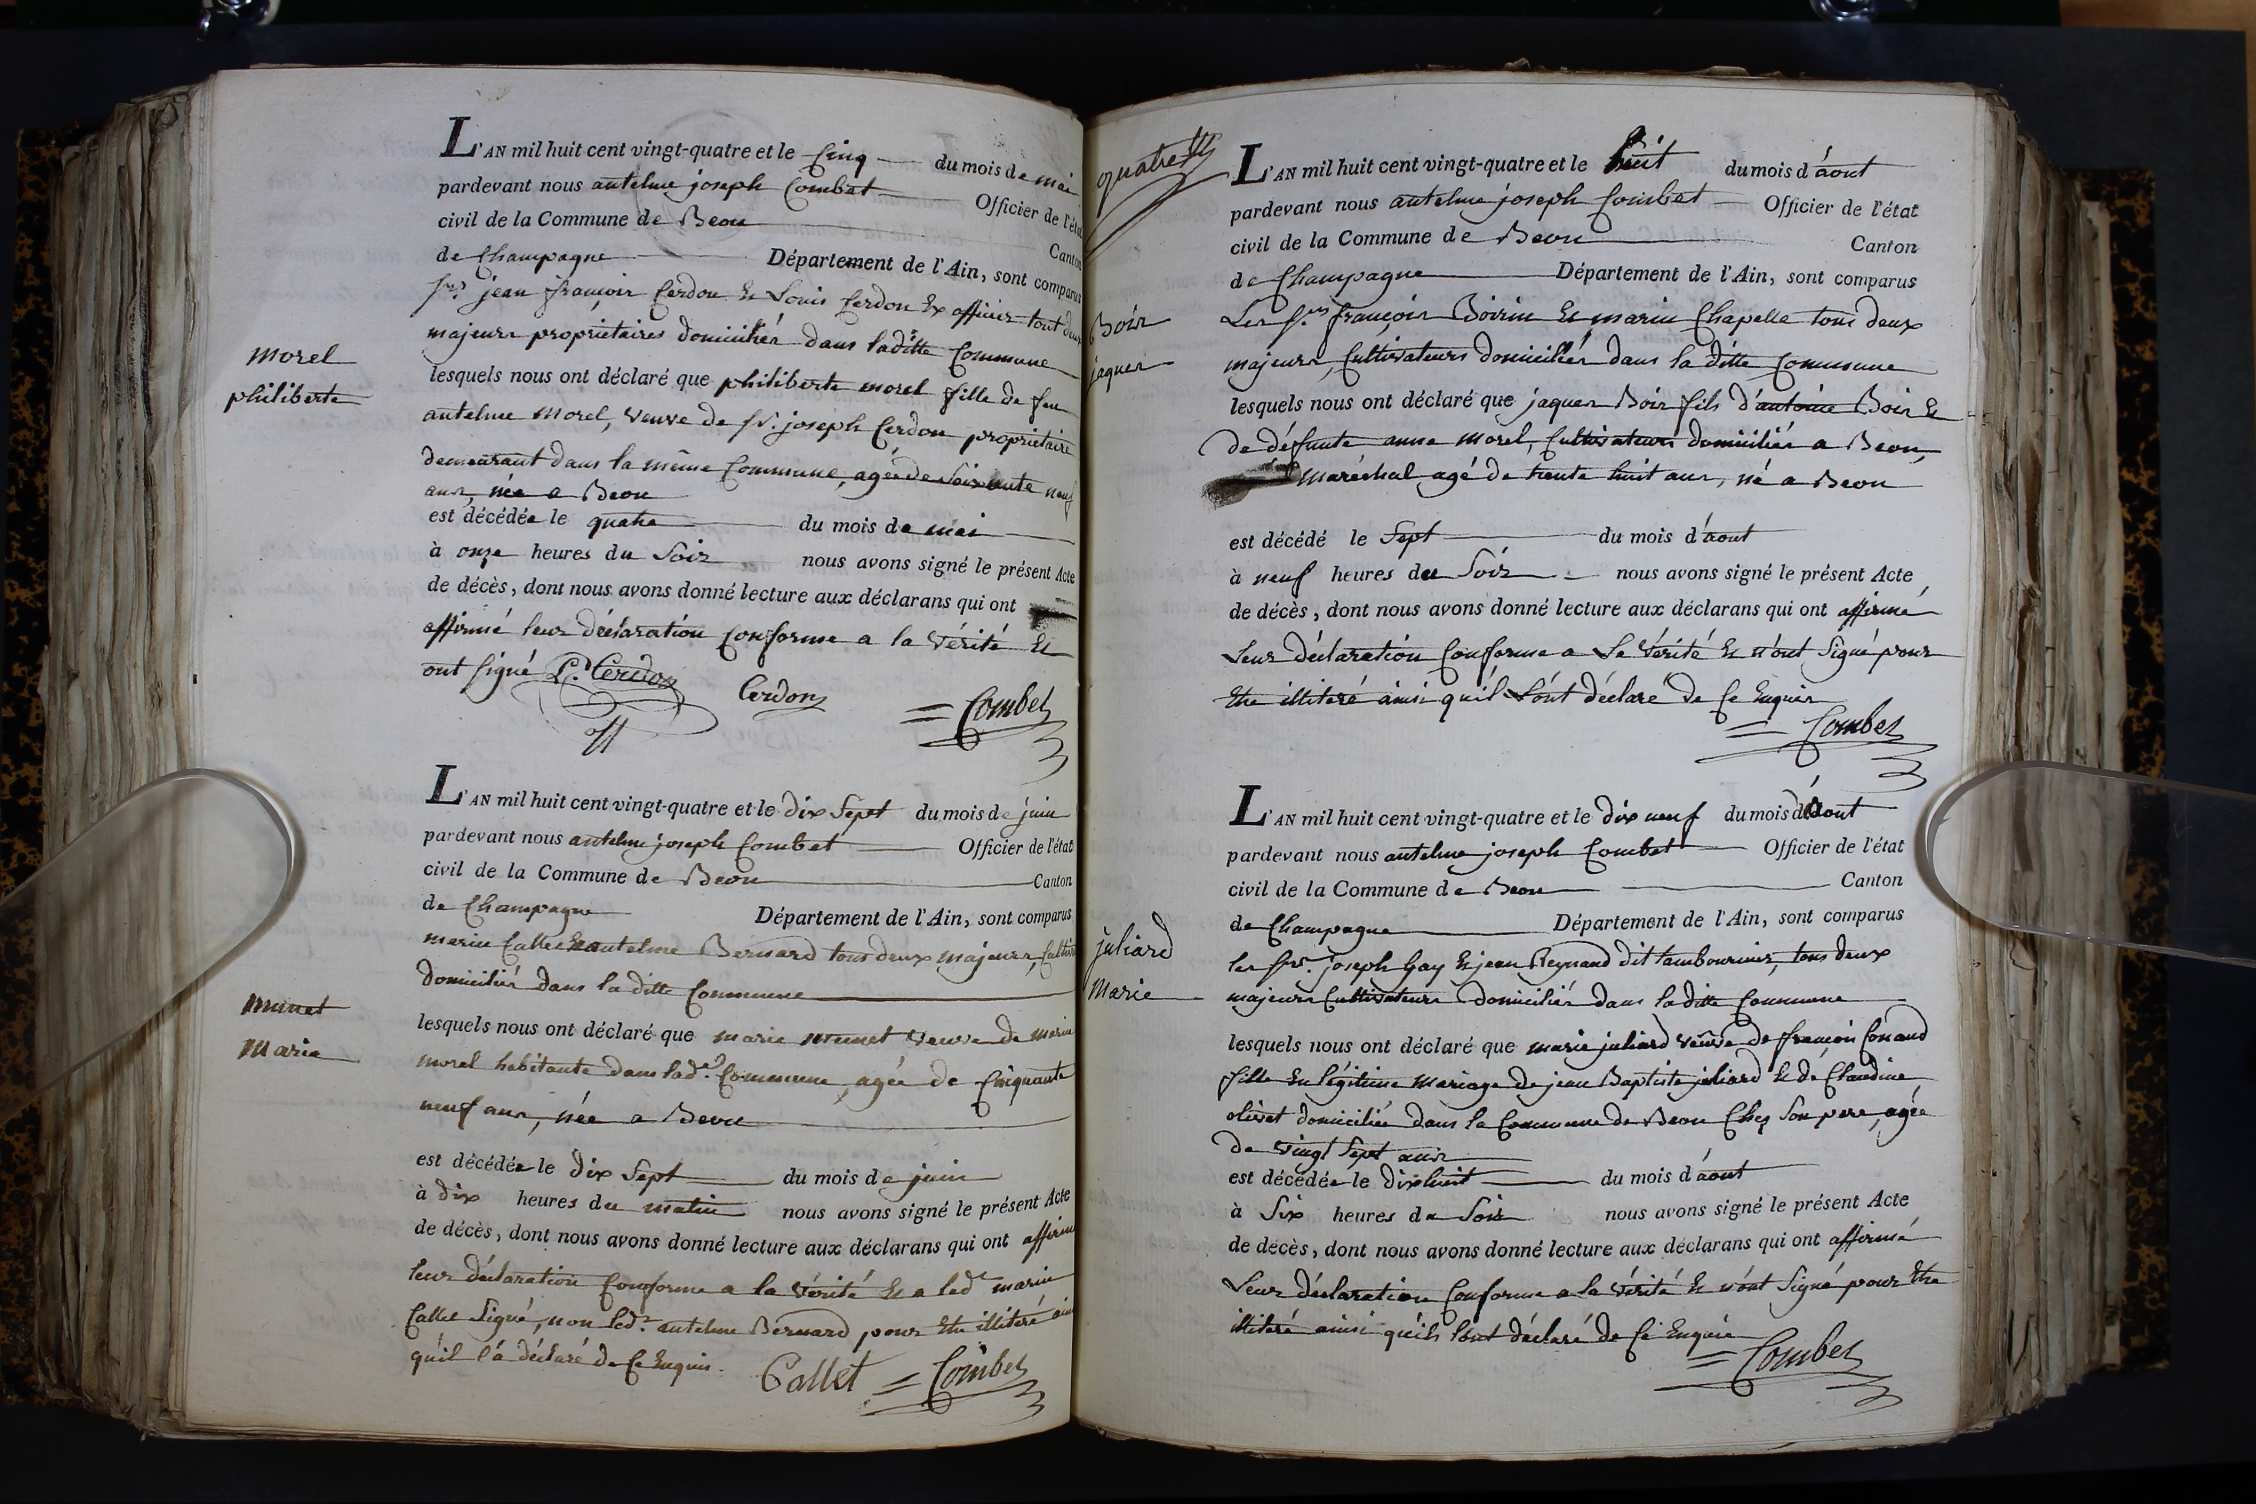 L'AN mil huit cent vingt-quatre et le Cinq du mois de mai
pardevant nous antelme joseph Combet Officier de l'état
civil de la Commune de Beon
Canton
de Champagne Département de l'Ain, sont comparus
jean françois Cerdon et Louis Cerdon Ex officier tout deux
majeurs propriétaires domiciliés dans laditte Commune
morel
philiberte
lesquels nous ont déclaré que philiberte morel fille de feu
antelme morel, veuve de sr. joseph Cerdon propriétaire
demeurant dans la même Commune, agée de Soixante neuf
ans, née a Beon
est décédée le quatre du mois de mai
à onze heures du Soir nous avons signé le présent Acte
de décès, dont nous avons donné lecture aux déclarans qui ont
affirmé leur déclaration Conforme a la vérité Et
ont signé Cerdon Cerdon Combet
L'AN mil huit cent vingt-quatre et le dix Sept du mois de juin
pardevant nous antelme joseph Combet Officier de l'état
civil de la Commune de Beon Canton
de Champagne Département de l'Ain, sont comparus
marin Callet Et antelme Bernard tous deux majeurs,
domiciliés dans la ditte Commune
munet
Marie
lesquels nous ont déclaré que marie munet veuve de marin
morel habitante dans lade. Commune, agée de Cinquante
neuf ans, née a Beon
est décédée le dix Sept du mois de juin
à dix heures du matin nous avons signé le présent Acte
de décès, dont nous avons donné lecture aux déclarans qui ont affirmé
leur déclaration Conforme a la vérité Et a led marin
Callet Signé, non led. antelme Bernard pour Etre illitéré
qu'il l'á déclaré de Ce Enquis. Callet Combet
quatre
L'AN mil huit cent vingt-quatre et le huit du mois d'áout
pardevant nous antelme joseph Combet Officier de l'état
civil de la Commune de Beon Canton
de Champagne Département de l'Ain, sont comparus
Les srs françois Boirin Et marin Chapelle tous deux
majeurs, Cultivateurs domiciliés dans la ditte Commune
Boir
jaques
lesquels nous ont déclaré que jaques Boir fils d'antoine Boir Et
de défunte anne morel, Cultivateurs domiciliés a Beon,
maréchal, agé de trente huit ans, né a Beon
est décédé le Sept du mois d'áout
à neuf heures du Soir nous avons signé le présent Acte
de décès, dont nous avons donné lecture aux déclarans qui ont affirmé
Leur déclaration Conforme a La vérité Et n'ont Signé pour
Etre illiteré ainsi qu'il L'ont déclaré de Ce Enquis
Combet
L'AN mil huit cent vingt-quatre et le dix neuf du mois d'áout
pardevant nous antelme joseph Combet Officier de l'état
civil de la Commune de Beon Canton
de Champagne Département de l'Ain, sont comparus
les srs. joseph Gay Et jean Reynaud dit tambourinier, tous deux
majeurs Cultivateurs domiciliés dans laditte Commune
juliard
Marie
lesquels nous ont déclaré que marie juliard veuve de françois Conand
fille En légitime mariage de jean Baptiste juliard Et de Claudine
olivet domiciliée dans la Commune de Beon Chez Son pere, agée
de vingt Sept ans
est décédée le dixhuit du mois d'áout
à Six heures du Soir nous avons signé le présent Acte
de décès, dont nous avons donné lecture aux déclarans qui ont affirmé
Leur déclaration Conforme a la vérité Et n'ónt Signé pour Etre
illiteré ainsi qu'ils l'ont déclaré de Ce Enquis
Combet